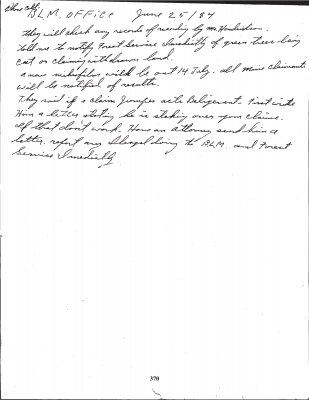 B.L.M. Office June 25/84
they will check any records of
told me to notify Forest Service Imediatly of green trees being
cut or claiming withdrawn land.
a new mikofilm will be out 14 July. all mine claimants
will be notified of results.
They said if a claim Jumper acts Beligerant. First write
Him a letter stating he is staking over your claims.
If that don't work. Have an Attorney send him a
letter. report any Illegal doing to B.L.M. and Forest
Service Imediatly
370